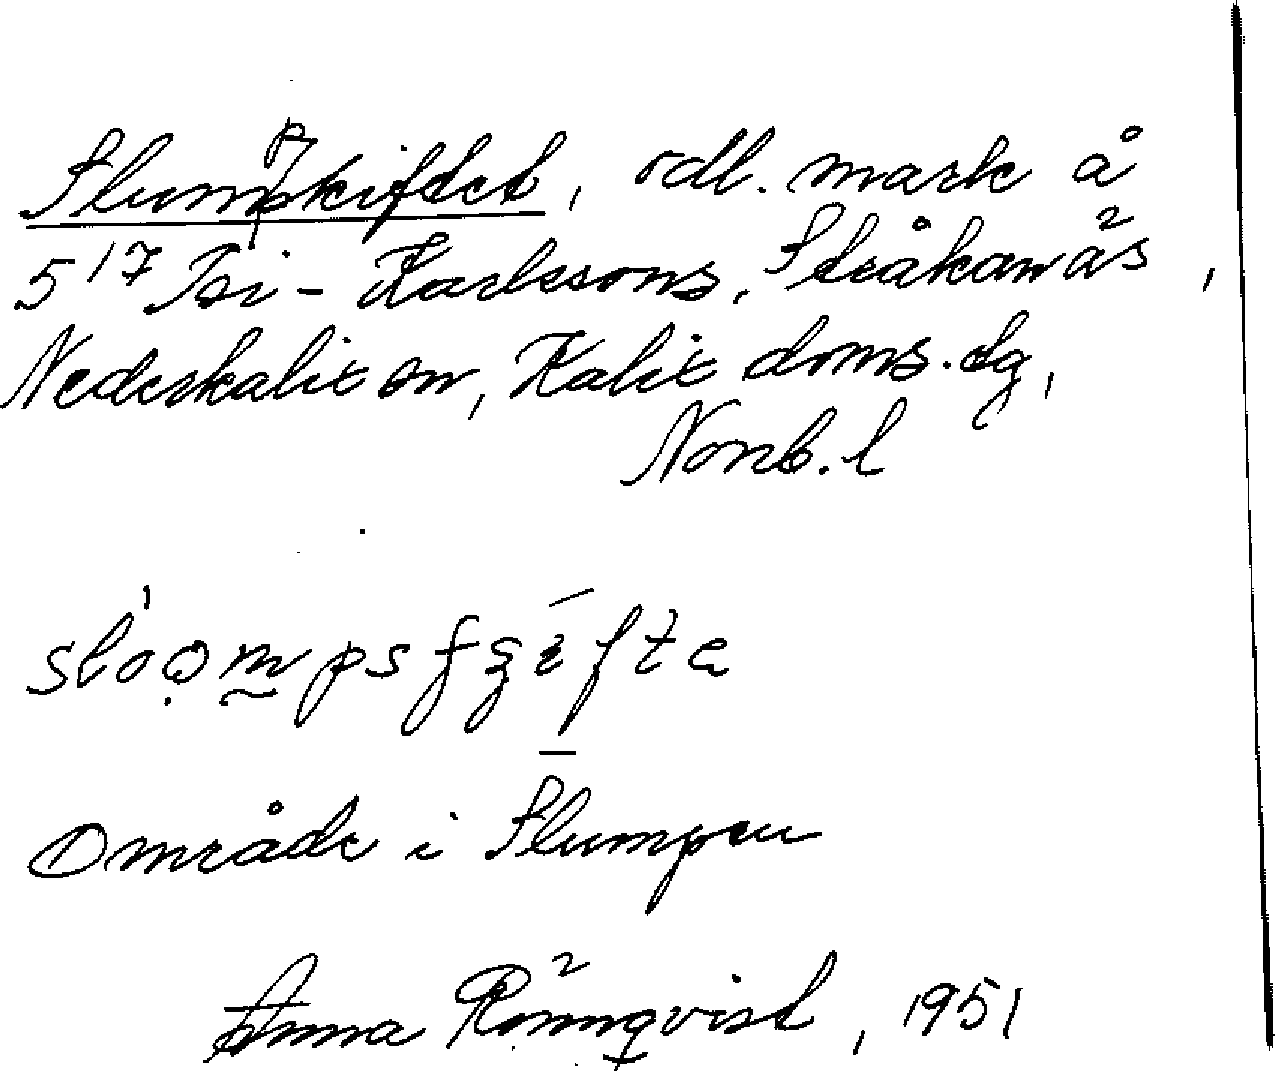 Slumpskiftet, odl. mark å
5¹⁷ Isi-Karlssons, Stråkanäs,
Nederkalix sn, Kalix doms.dg,
Norrb. l
Område i Slumpen
Anna Rönnqvist, 1951